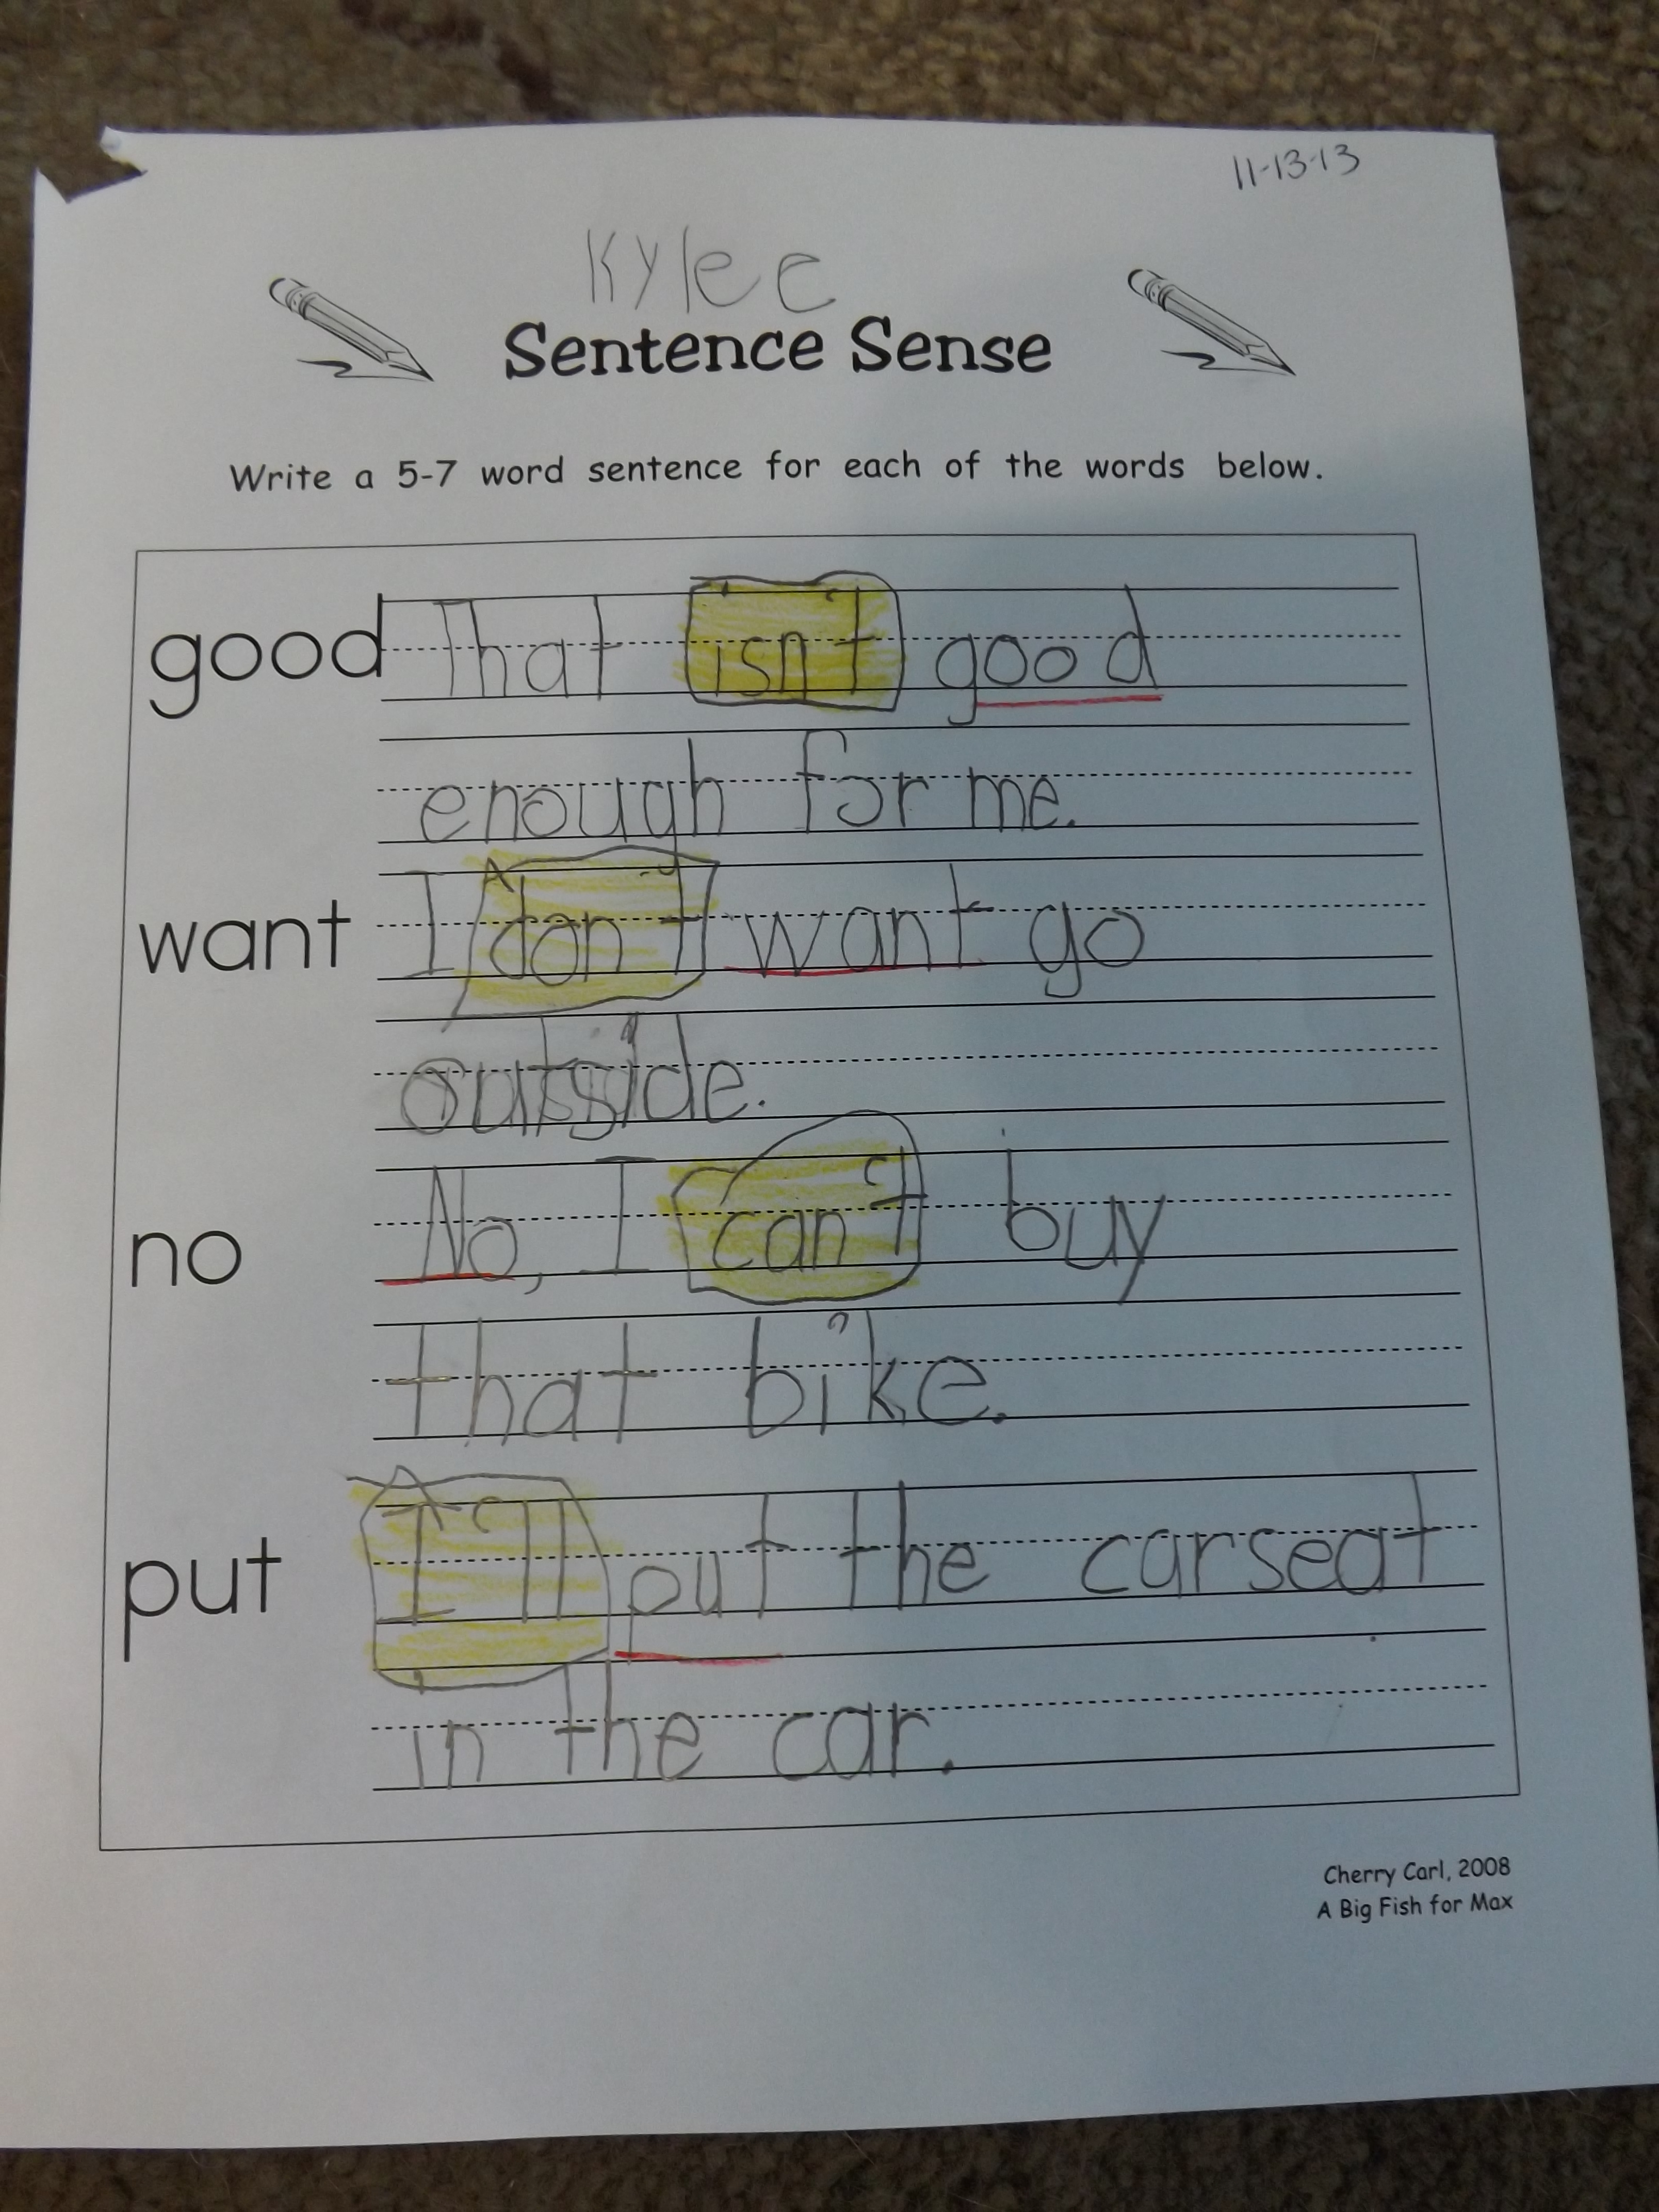 11-13-13
Kylee
Sentence Sense
Write a 5-7 word sentence for each of the words below.
good That isn't good
enough for me.
want I don't want go
outside.
no No, I can't buy
that bike.
put I'll put the carseat
in the car.
Cherry Carl, 2008
A Big Fish for Max